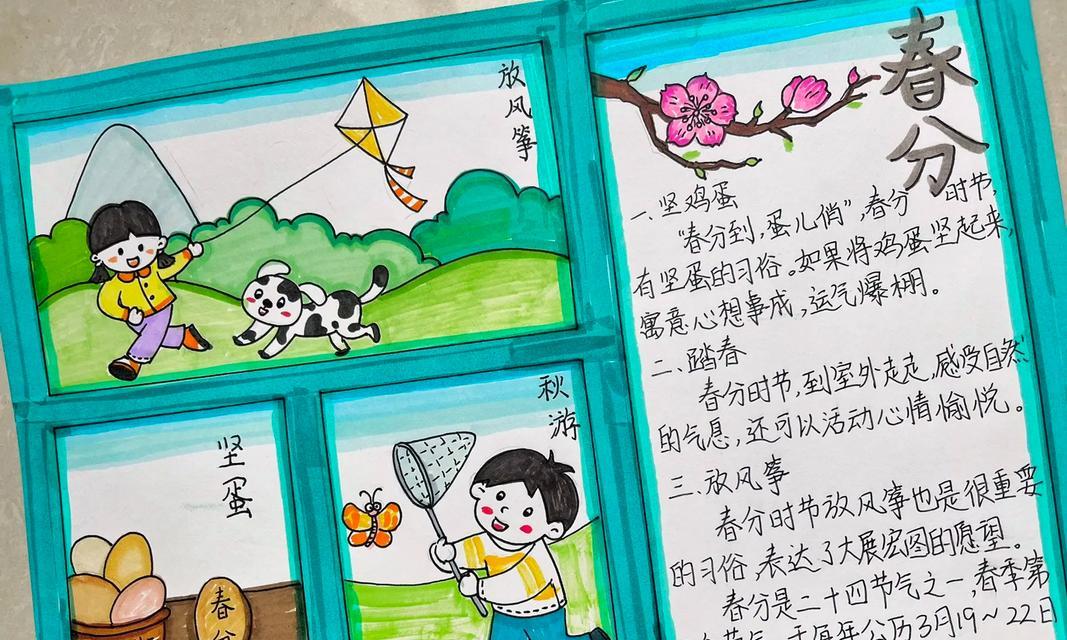 放风筝
坚蛋
春分
秋游
春分
一.坚鸡蛋
"春分到,蛋儿俏",春分 时节,
有坚蛋的习俗。如果将鸡蛋坚起来,
寓意心想事成,运气爆棚。
二.踏春
春分时节,到室外走走,感受自然
的气息,还可以活动心情愉悦。
三.放风筝
春分时节放风筝也是很重要
的习俗,表达了大展宏图的愿望。
春分是二十四节气之一,春季第
节气,于每年公历3月19~22日